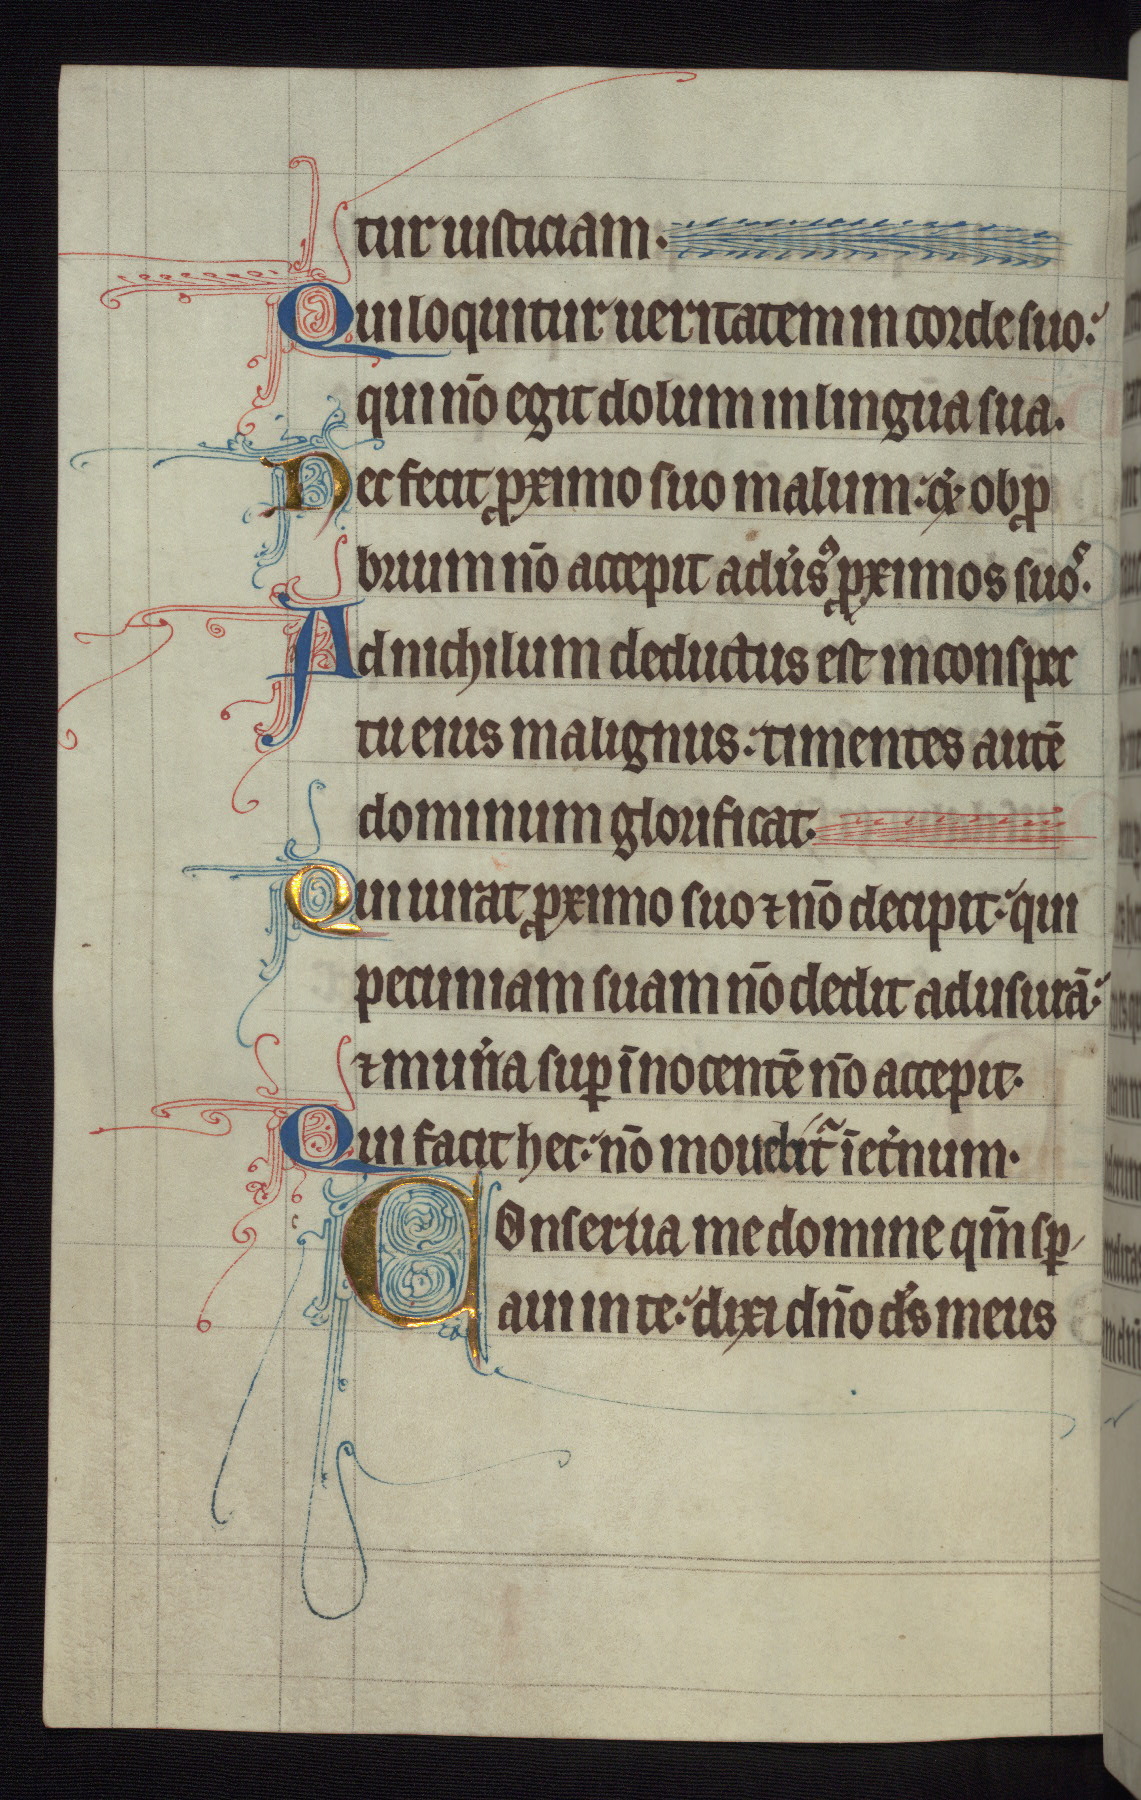 tur iusticiam.
Qui loquitur ueritatem in corde suo:
qui nō egit dolum in lingua sua.
Nec fecit ꝓximo suo malum: ⁊ obꝓ
brium nō accepit aduͥsꝰ ꝓximos suoˢ.
Ad nichilum deductus est in conspec
tu eius malignus: timentes autē
dominum glorificat.
Qui iurat ꝓximo suo ⁊ nō decipit: qui
pecuniam suam nō dedit ad usurā:
⁊ mun̾a suꝑ īnocentē nō accepit.
Qui facit hec: nō mouebit᷑ īet̾num.
Conserua me domine qm̄ sꝑ
aui in te: dixi dn̄o ds̄ meus